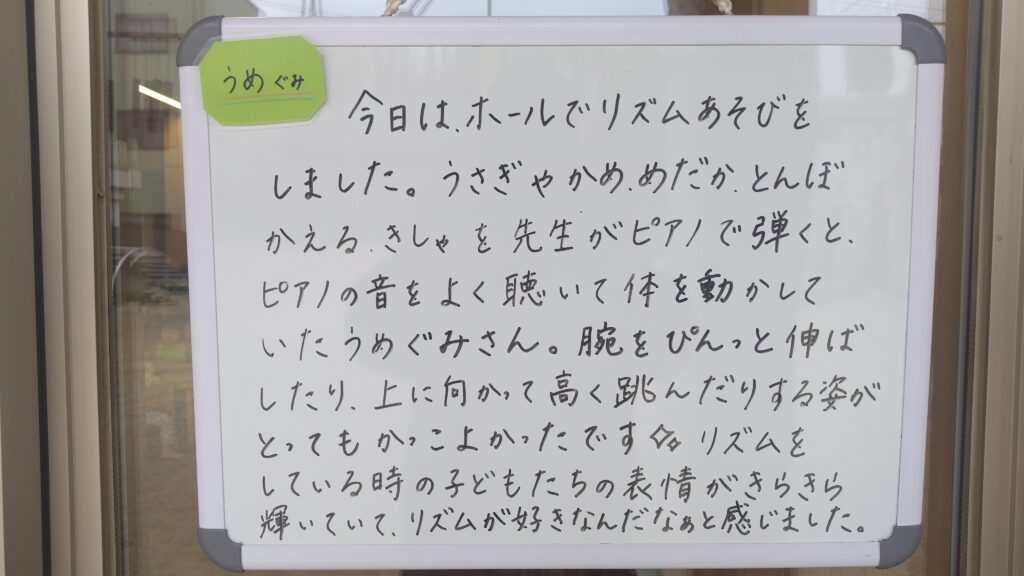 うめぐみ
今日は、ホールでリズムあそびを
しました。うさぎやかめ、めだか、とんぼ
かえる、きしゃを先生がピアノで弾くと、
ピアノの音をよく聴いて体を動かして
いたうめぐみさん。腕をぴんっと伸ば
したり、上に向かって高く跳んだりする姿が
とってもかっこよかったです✨ リズムを
している時の子どもたちの表情がきらきら
輝いていて、リズムが好きなんだなぁと感じました。